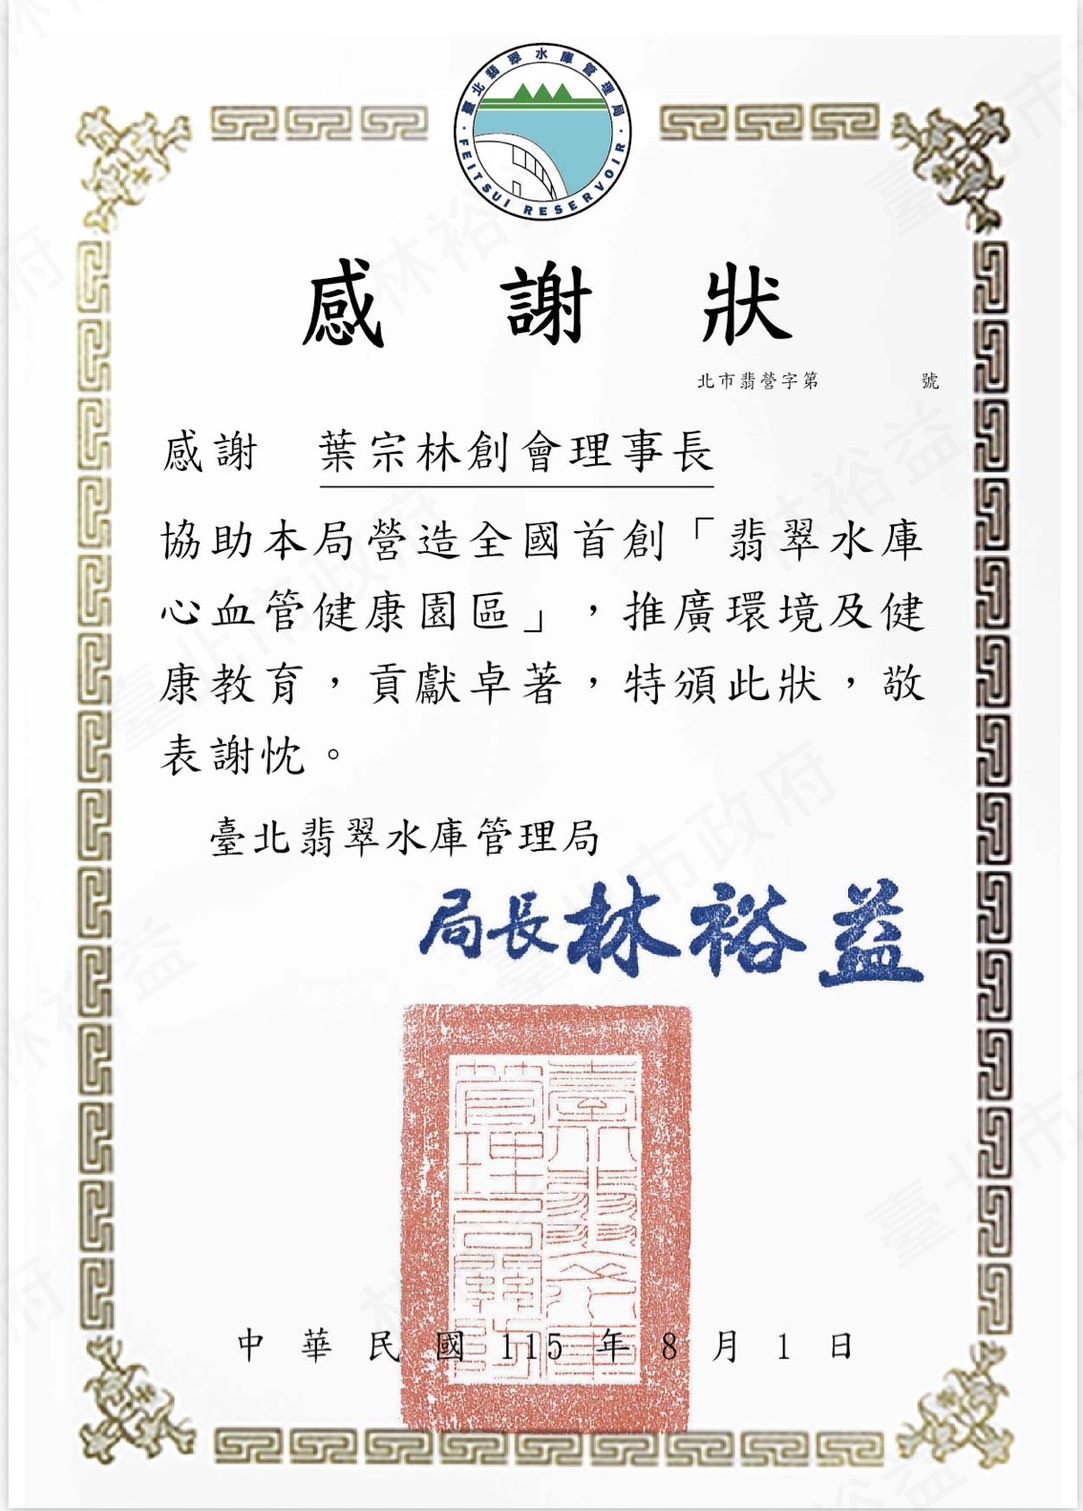 臺北翡翠水庫管理局
FEITSUI RESERVOIR
感謝狀
北市翡營字第 號
感謝 葉宗林創會理事長
協助本局營造全國首創「翡翠水庫
心血管健康園區」，推廣環境及健
康教育，貢獻卓著，特頒此狀，敬
表謝忱。
臺北翡翠水庫管理局
局長林裕益
中華民國115年8月1日
臺北市政府
林裕益